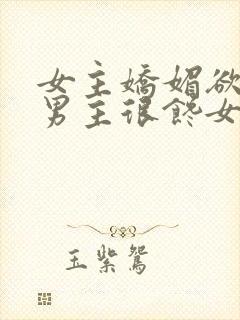 女主嬌媚欲
男主很饞女
玉紫鴛